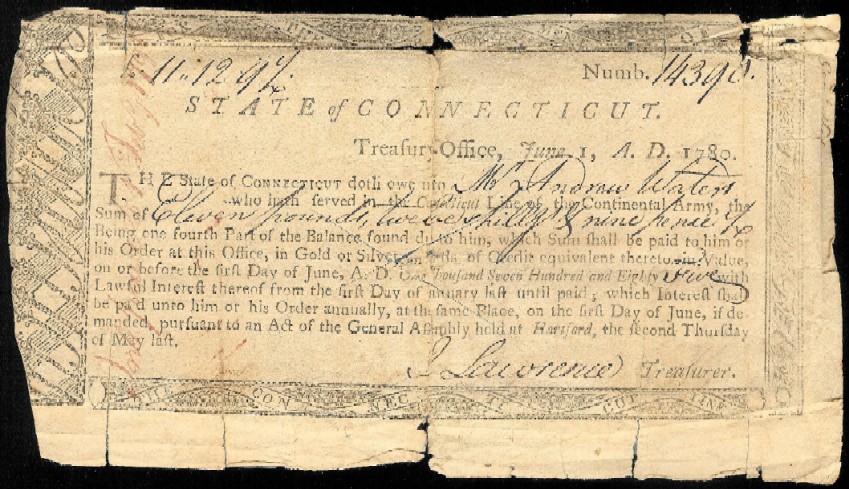 11.. 12 .. 9¾. Numb. 14390.
STATE of CONNECTICUT.
Treasury-Office, June 1, A. D. 1780.
THE State of CONNECTICUT doth owe unto Mr Andrew Waters
who hath served in the Connecticut Line of the Continental Army, the
Sum of Eleven pounds, twelve shillgs & nine pence ¾
Being one fourth Part of the Balance found due to him, which Sum shall be paid to him or
his Order at this Office, in Gold or Silver, or Bills of Credit equivalent thereto in Value,
on or before the first Day of June, A. D. One Thousand Seven Hundred and Eighty five with
Lawful Interest thereof from the first Day of January last until paid; which Interest shall
be paid unto him or his Order annually, at the same Place, on the first Day of June, if de-
manded, pursuant to an Act of the General Assembly held at Hartford, the second Thursday
of May last.
J Lawrence Treasurer.
CON NEC TI CUT LINE